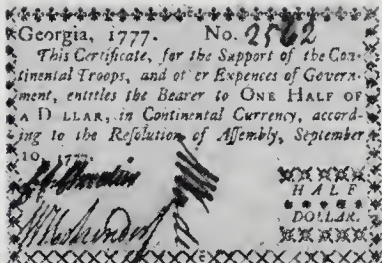 Georgia, 1777. No. 2502
This Certificate, for the Support of the Con-
tinental Troops, and ot er Expences of Govern-
ment, entitles the Bearer to ONE HALF OF
A D LLAR, in Continental Currency, accord-
ing to the Resolution of Assembly, September
10, 1777.
HALF
DOLLAR.